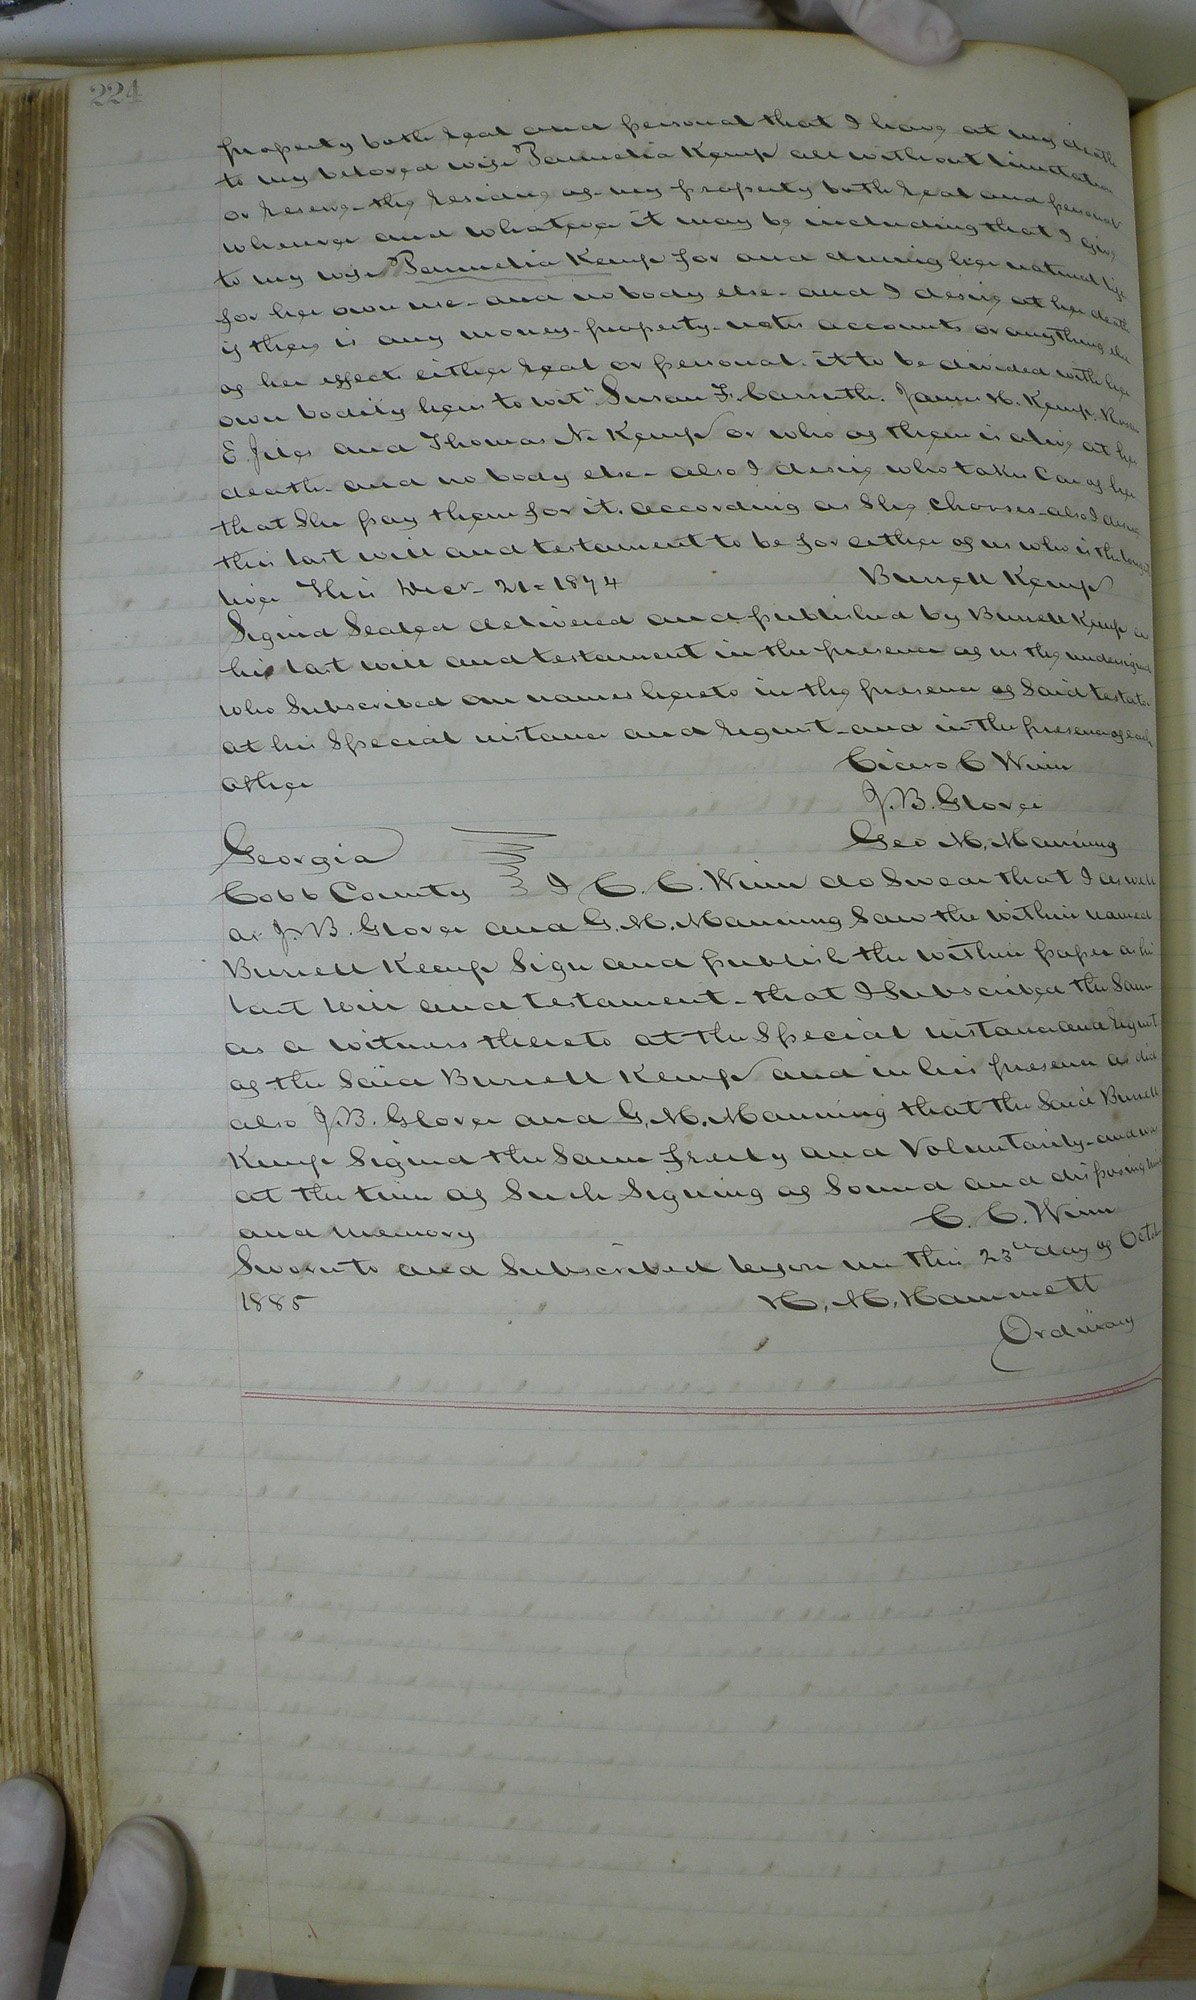 224
property both real and personal that I have at my death
to my beloved wife Parmelia Kemp all without limitation
or reserve - the residue of my property both real and personal
wherever and whatever it may be including that I give
to my wife Parmelia Kemp for and during her natural life
for her own use - and no body else - and I desire at her death
if there is any money - property - notes accounts or anything else
of her effects either real or personal. it to be divided with her
own bodily heirs to wit" Susan F. Carruth. James H. Kemp,
E Jiles and Thomas N. Kemp or who of them is alive at her
death - and no body else - also I desire who takes Care of her
that She pay them for it. according as She chooses - also I desire
this last will and testament to be for either of us who is the longest
liver This Decr. 21= 1874 Burrell Kemp
Signed Sealed delivered and published by Burrell Kemp as
his last will and testament in the presence of us the undersigned
who Subscribed our names hereto in the presence of Said testator
at his Special instance and request - and in the presence of each
other Cicero C Winn
J. B. Glover
Geo M. Manning
Georgia
Cobb County I C. C. Winn do Swear that I as well
as J. B. Glover and G. M. Manning Saw the within named
Burrell Kemp Sign and publish the within paper as his
last will and testament - that I Subscribed the Same
as a witness thereto at the Special instance and request
of the Said Burrell Kemp and in his presence as did
also J. B. Glover and G. M. Manning that the Said Burrell
Kemp Signed the Same freely and Voluntarily - and was
at the time of Such Signing of Sound and disposing mind
and memory C. C. Winn
Sworn to and Subscribed before me this 23rd day of Octob
1885 H. M. Hammett
Ordinary